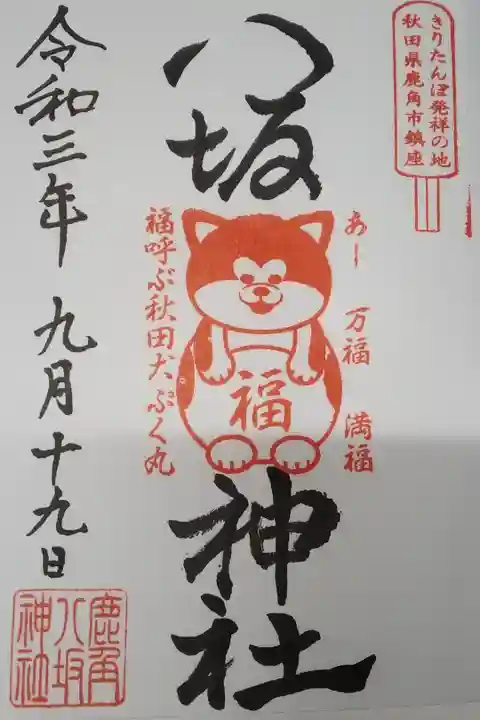 きりたんぽ発祥の地
秋田県鹿角市鎮座
八坂
神社
あー 万福 満福
福
福呼ぶ秋田犬ぷく丸
令和三年 九月十九日
鹿角
八坂
神社